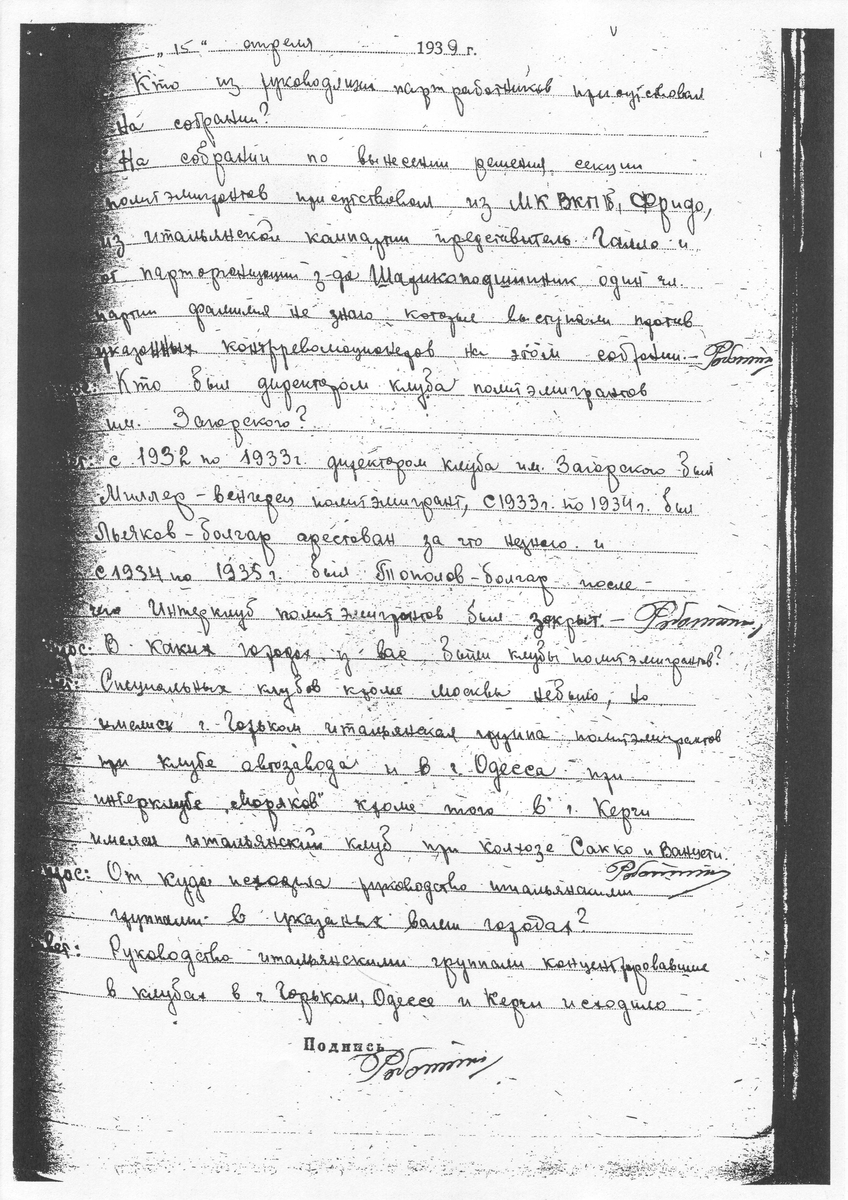 „15“ апреля 1939 г.
Кто из руководящих парт работников присутствовал
на собрании?
На собрании по вынесении решения секции
политэмигрантов присутствовал из МК ВКПБ, Фридо,
из итальянской компартии представитель Галло и
от парторганизации з-да Шарикоподшипник один чл.
партии фамилия не знаю которые выступали против
указанных контрреволюционеров на этом собрании. –
Кто был директором клуба политэмигрантов
им. Загорского?
с 1932 по 1933 г. директором клуба им. Загорского был
Миллер – венгерец политэмигрант, с 1933 г. по 1934 г. был
Льяков – болгар арестован за что незнаю и
с 1934 по 1935 г. был Тополов – болгар после –
чего Интерклуб политэмигрантов был закрыт. –
В каких городах у вас были клубы политэмигрантов?
Специальных клубов кроме Москвы небыло, но
имелись г. Горьком итальянская группа политэмигрантов
при клубе автозавода и в г. Одесса при
интерклубе „Моряков“ кроме того в г. Керчи
имелся итальянский клуб при колхозе Сакко и Ванцети.
От куда исходила руководство итальянскими
группами в указаных вами городах?
вет: Руководство итальянскими группами концентрировавшие
в клубах в г. Горьком, Одессе и Керчи исходило
Подпись